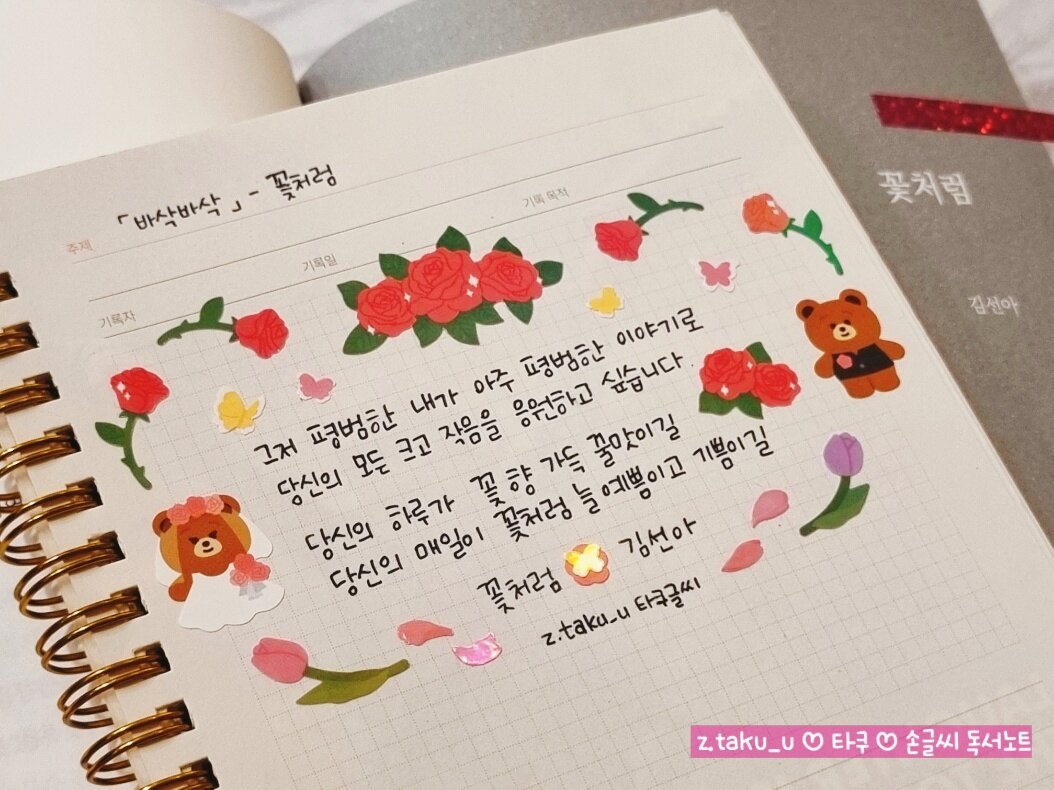 「바삭바삭」 - 꽃처럼
주제
기록자
기록일
기록 목적
그저 평범한 내가 아주 평범한 이야기로
당신의 모든 크고 작음을 응원하고 싶습니다.
당신의 하루가 꽃향 가득 꿀맛이길
당신의 매일이 꽃처럼 늘 예쁨이고 기쁨이길
꽃처럼 김선아
z.taku_u 타쿠글씨
꽃처럼
김선아
z.taku_u ♡ 타쿠 ♡ 손글씨 독서노트